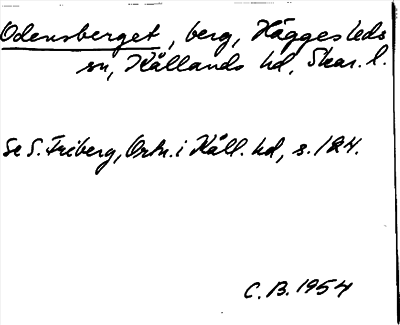 Odensberget, berg, Häggesleds
sn, Kållands hd, Skar. l.
Se S. Friberg, Ortn. i Kåll. hd, s. 184.
C. B. 1954